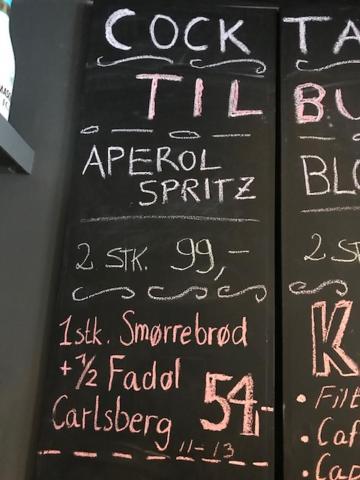 COCK TA
TIL BU
APEROL
SPRITZ
BLO
2 STK. 99,-
2 S
1stk. Smørrebrød
+ 1/2 Fadøl
Carlsberg 54,-
11-13
K
• Filt
• Caf
• Cap